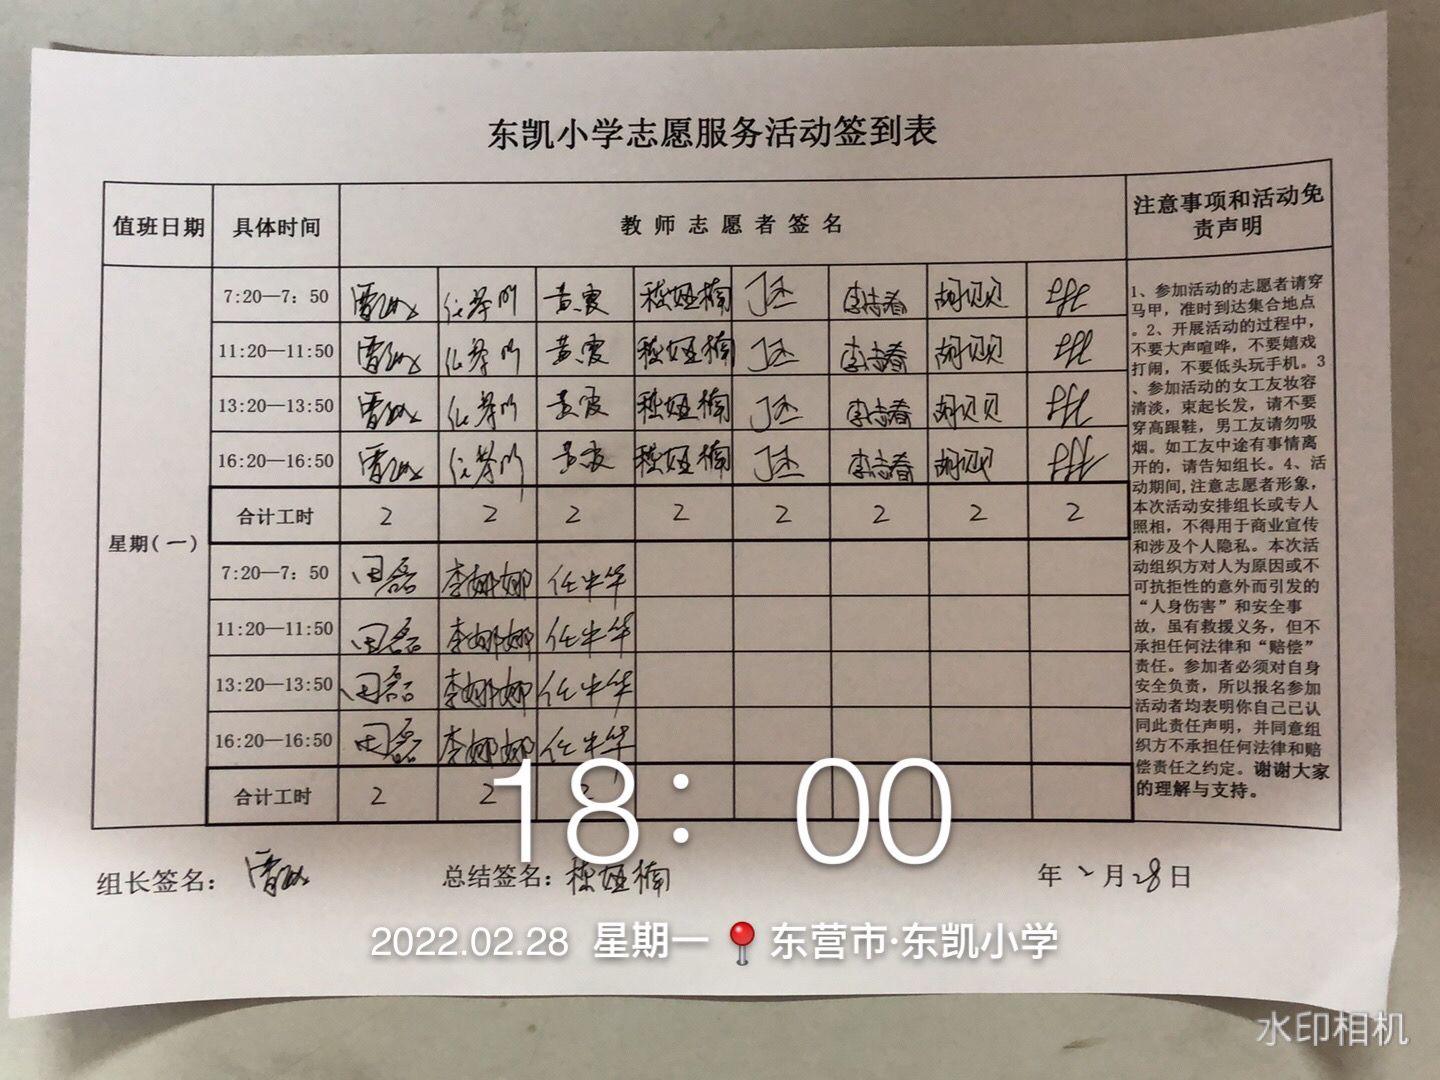 东凯小学志愿服务活动签到表
值班日期 具体时间 教师志愿者签名 注意事项和活动免
责声明
7:20—7：50 黄霞 李志春 胡贝贝
11:20—11:50 黄霞 李志春 胡贝贝
13:20—13:50 黄霞 李志春 胡贝贝
16:20—16:50 黄霞 李志春 胡贝贝
合计工时 2 2 2 2 2 2 2 2
星期(一)
7:20—7：50 田磊 李娜娜
11:20—11:50 田磊 李娜娜
13:20—13:50 田磊 李娜娜
16:20—16:50 田磊 李娜娜
合计工时 2 2 2
1、参加活动的志愿者请穿
马甲，准时到达集合地点
。2、开展活动的过程中，
不要大声喧哗，不要嬉戏
打闹，不要低头玩手机。3
、参加活动的女工友妆容
清淡，束起长发，请不要
穿高跟鞋，男工友请勿吸
烟。如工友中途有事情离
开的，请告知组长。4、活
动期间,注意志愿者形象，
本次活动安排组长或专人
照相，不得用于商业宣传
和涉及个人隐私。本次活
动组织方对人为原因或不
可抗拒性的意外而引发的
“人身伤害”和安全事
故，虽有救援义务，但不
承担任何法律和“赔偿”
责任。参加者必须对自身
安全负责，所以报名参加
活动者均表明你自己已认
同此责任声明，并同意组
织方不承担任何法律和赔
偿责任之约定。谢谢大家
的理解与支持。
18：00
组长签名： 总结签名： 年 2 月 28 日
2022.02.28 星期一 东营市·东凯小学
水印相机